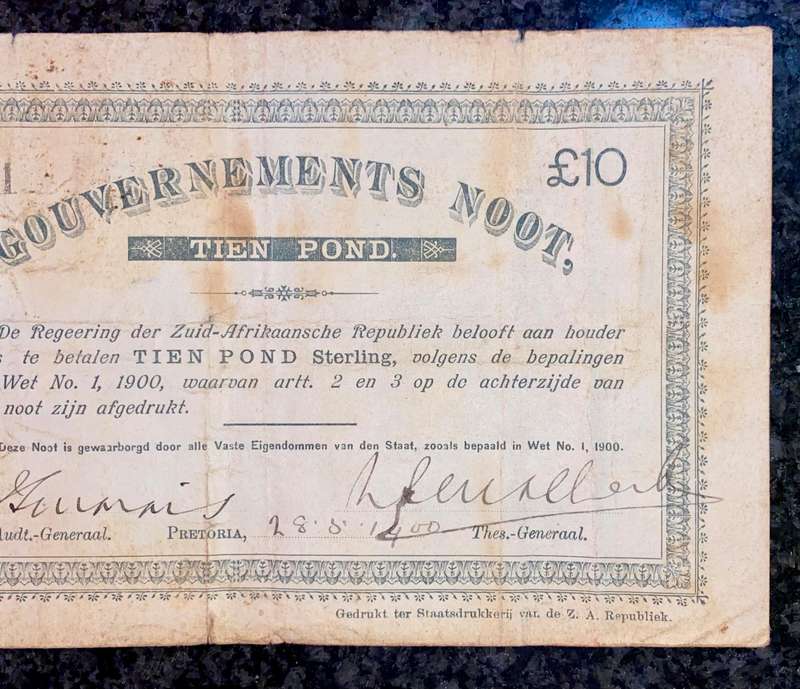 1
£10
GOUVERNEMENTS NOOT,
TIEN POND.
De Regeering der Zuid-Afrikaansche Republiek belooft aan houder
s te betalen TIEN POND Sterling, volgens de bepalingen
Wet No. 1, 1900, waarvan artt. 2 en 3 op de achterzijde van
noot zijn afgedrukt.
Deze Noot is gewaarborgd door alle Vaste Eigendommen van den Staat, zooals bepaald in Wet No. 1, 1900.
Audt.-Generaal. PRETORIA, 28.5.1900 Thes.-Generaal.
Gedrukt ter Staatsdrukkerij van de Z. A. Republiek.